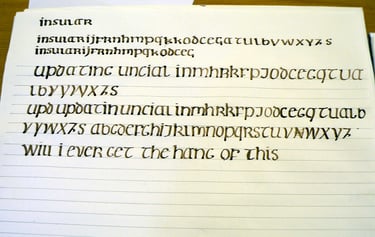 insular
insularijfrnhmpqkkodcegatulbvwxyzs
insularijfrnhmpgkodceg
updating uncial inmhrkfpjodcegqtua
lbvyvwxzs
upd updatin uncial inmhrkfpjodcegqtualb
vyvwxzs abcdefghijklmnopqrstuvwxyz
will i ever get the hang of this